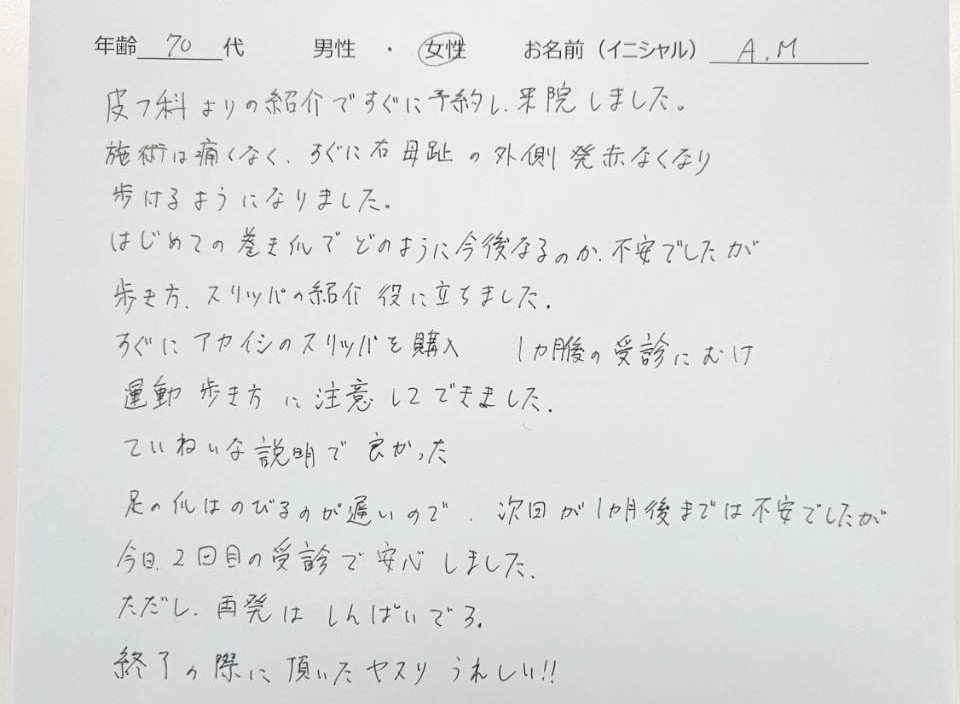 年齢 70 代 男性 ・ 女性 お名前（イニシャル） A.M
皮フ科よりの紹介ですぐに予約し、来院しました。
施術は痛くなく、すぐに右母趾の外側発赤なくなり
歩けるようになりました。
はじめての巻き爪でどのように今後なるのか、不安でしたが
歩き方、スリッパの紹介役に立ちました。
すぐにアカイシのスリッパを購入 1カ月後の受診にむけ
運動歩き方に注意してできました。
ていねいな説明で良かった
足の爪はのびるのが遅いので、次回が1カ月後までは不安でしたが
今日、2回目の受診で安心しました。
ただし、再発はしんぱいでる。
終了の際に頂いたヤスリうれしい!!